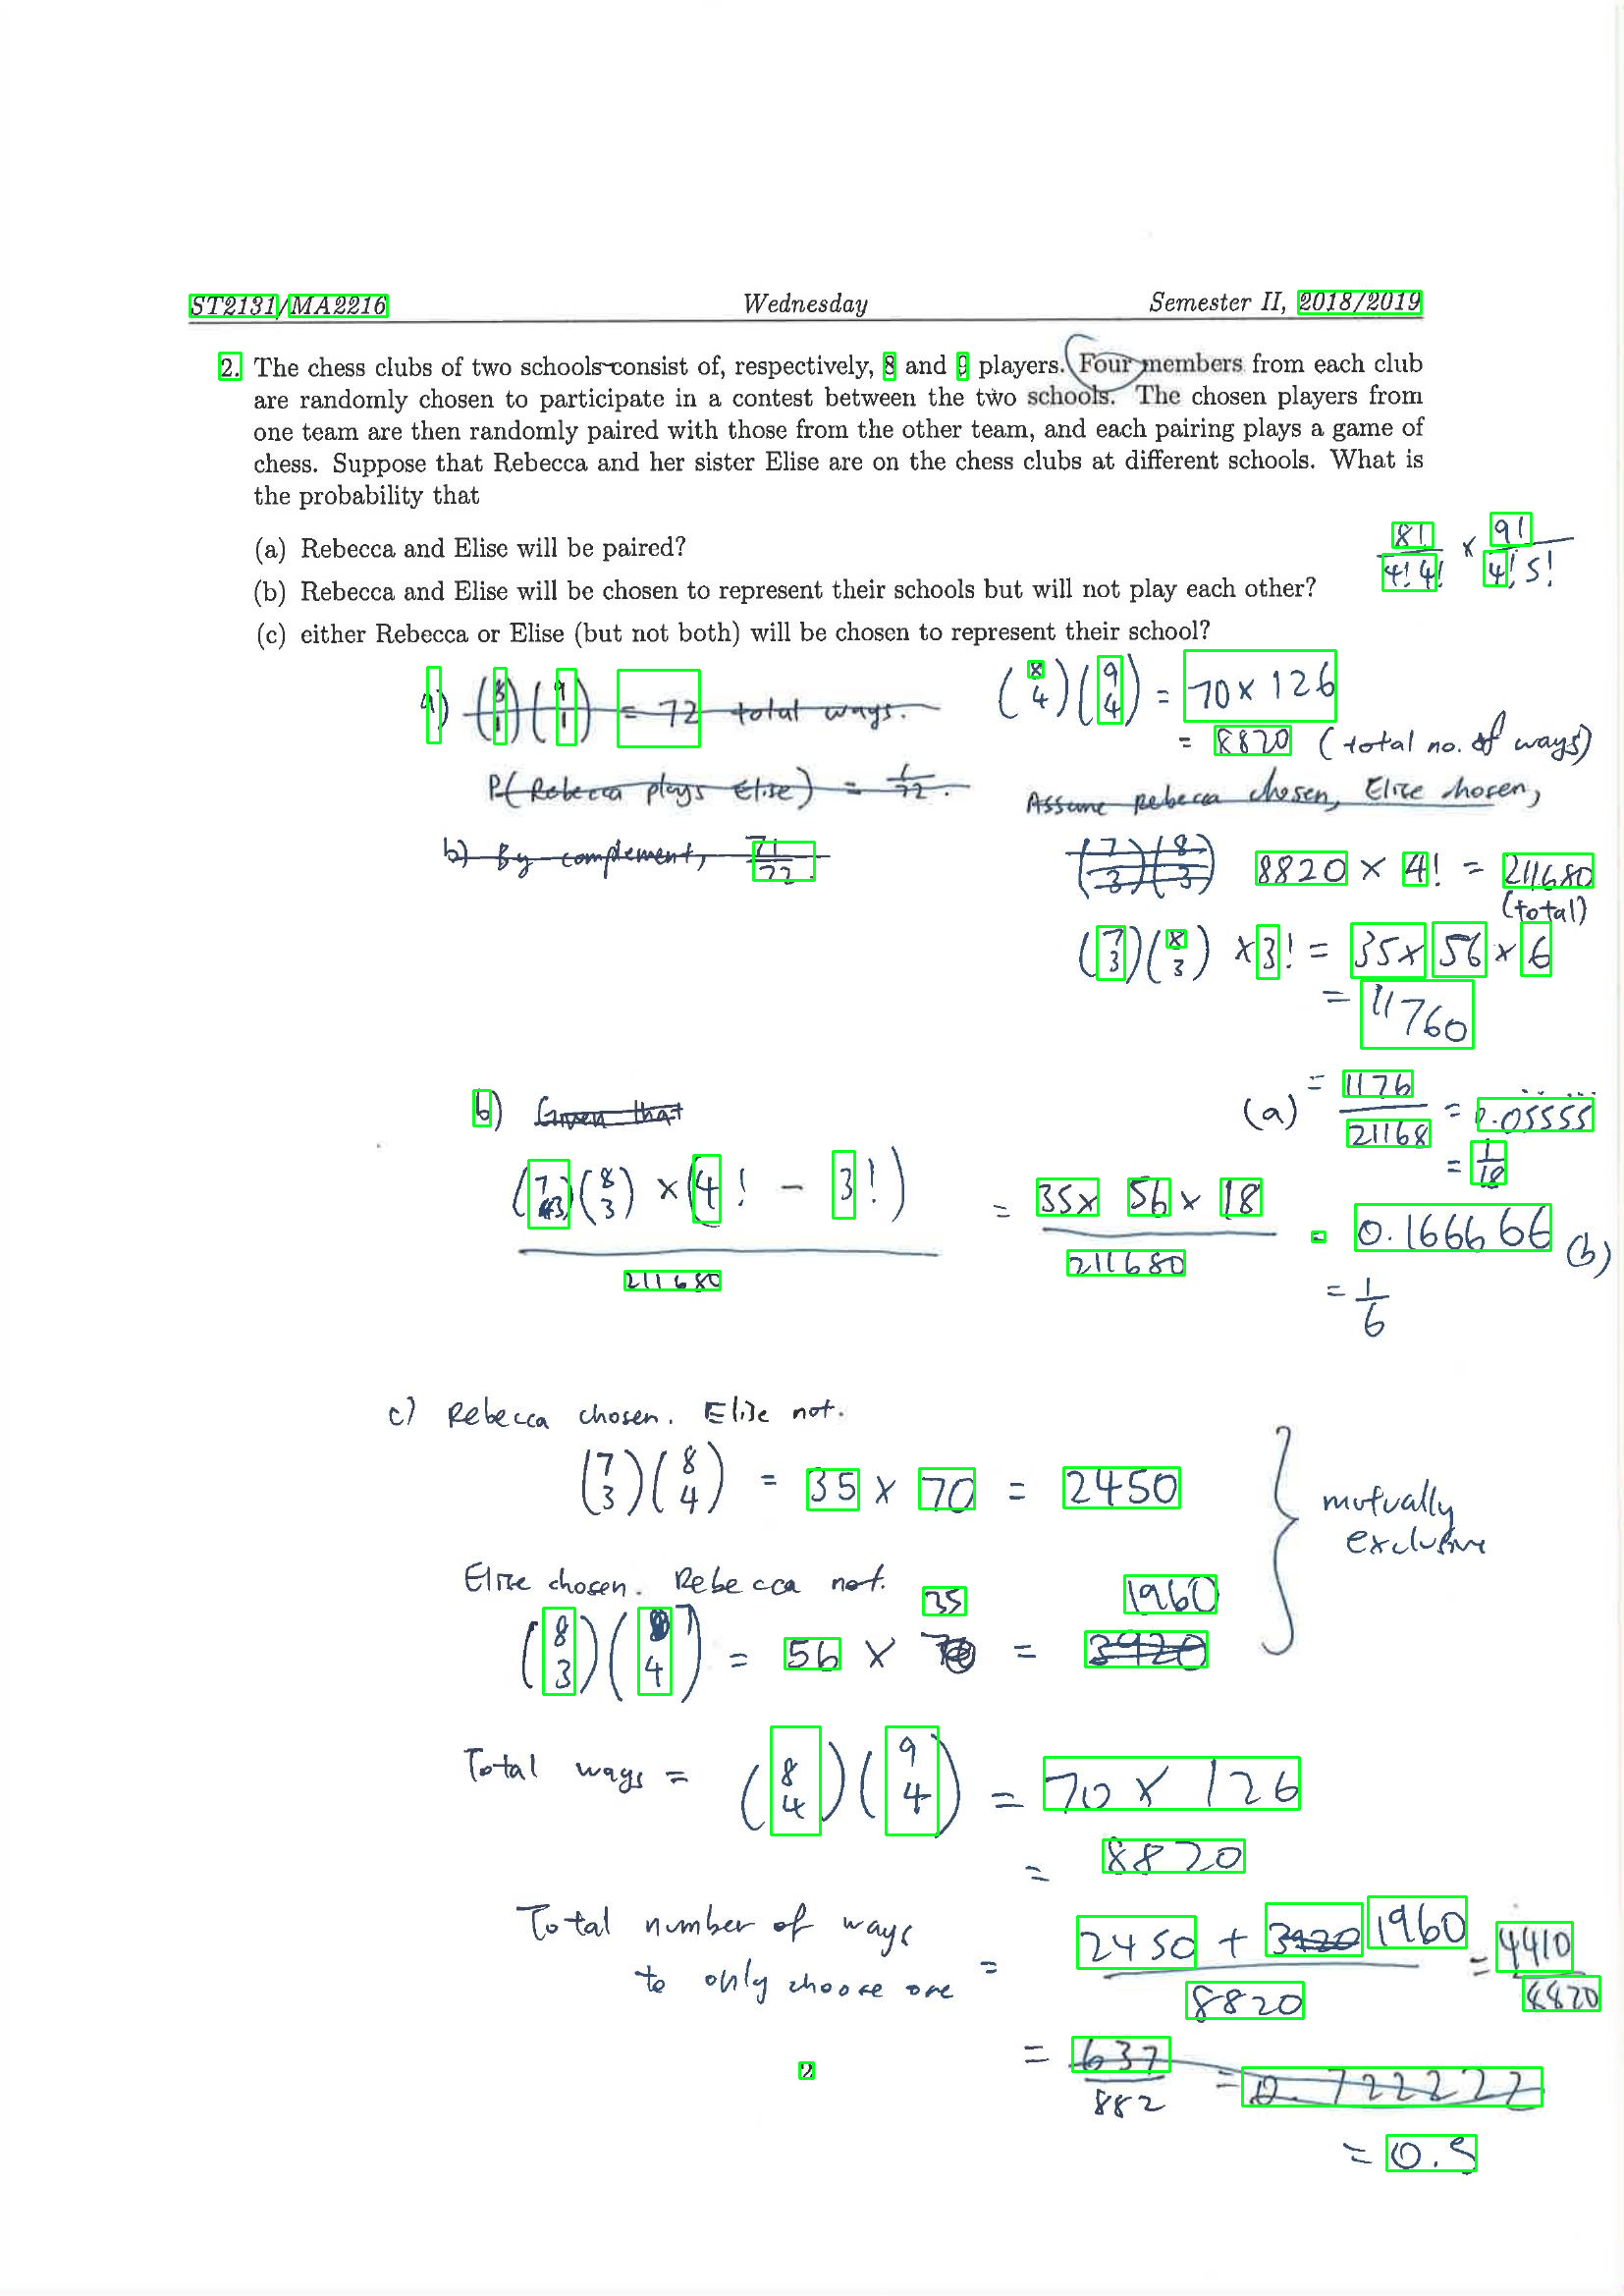 ST2131/MA2216 Wednesday Semester II, 2018/2019
2. The chess clubs of two schools consist of, respectively, 8 and 9 players. Four members from each club
are randomly chosen to participate in a contest between the two schools. The chosen players from
one team are then randomly paired with those from the other team, and each pairing plays a game of
chess. Suppose that Rebecca and her sister Elise are on the chess clubs at different schools. What is
the probability that
(a) Rebecca and Elise will be paired?
(b) Rebecca and Elise will be chosen to represent their schools but will not play each other?
(c) either Rebecca or Elise (but not both) will be chosen to represent their school?
8!/4!4! × 9!/4!5!
a) (8 1)(9 1) = 72 total ways.
P(Rebecca plays Elise) = 1/72.
b) By complement, 71/72.
(8 4)(9 4) = 70 × 126
= 8820 (total no. of ways)
Assume Rebecca chosen, Elise chosen,
(7 3)(8 3) 8820 × 4! = 211680
(total)
(7 3)(8 3) × 3! = 35 × 56 × 6
= 11760
(a) = 1176/21168 = 0.05555
= 1/18
b) Given that
(7 3)(8 3) × (4! - 3!) / 211680 = 35 × 56 × 18 / 211680 = 0.166666 (b)
= 1/6
c) Rebecca chosen. Elise not.
(7 3)(8 4) = 35 × 70 = 2450
Elise chosen. Rebecca not.
35 1960
(8 3)(7 4) = 56 × 70 = 3920
mutually
exclusive
Total ways = (8 4)(9 4) = 70 × 126
= 8820
Total number of ways
to only choose one = 2450 + 3920 1960 / 8820 = 4410/8820
= 637/882 = 0.722222
= 0.5
2